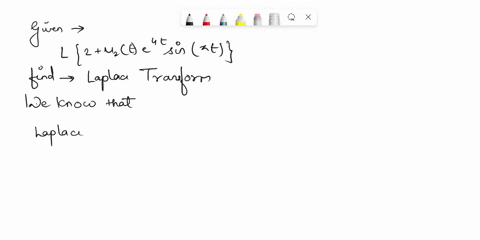 Given →
L { 2 + u₂(t) e^{4t} sin (πt) }
find → Laplace Transform
We know that
Laplac